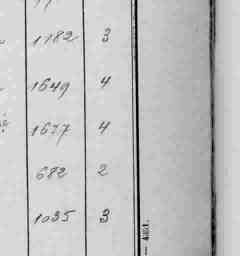 1182 3
1649 4
1677 4
682 2
1035 3